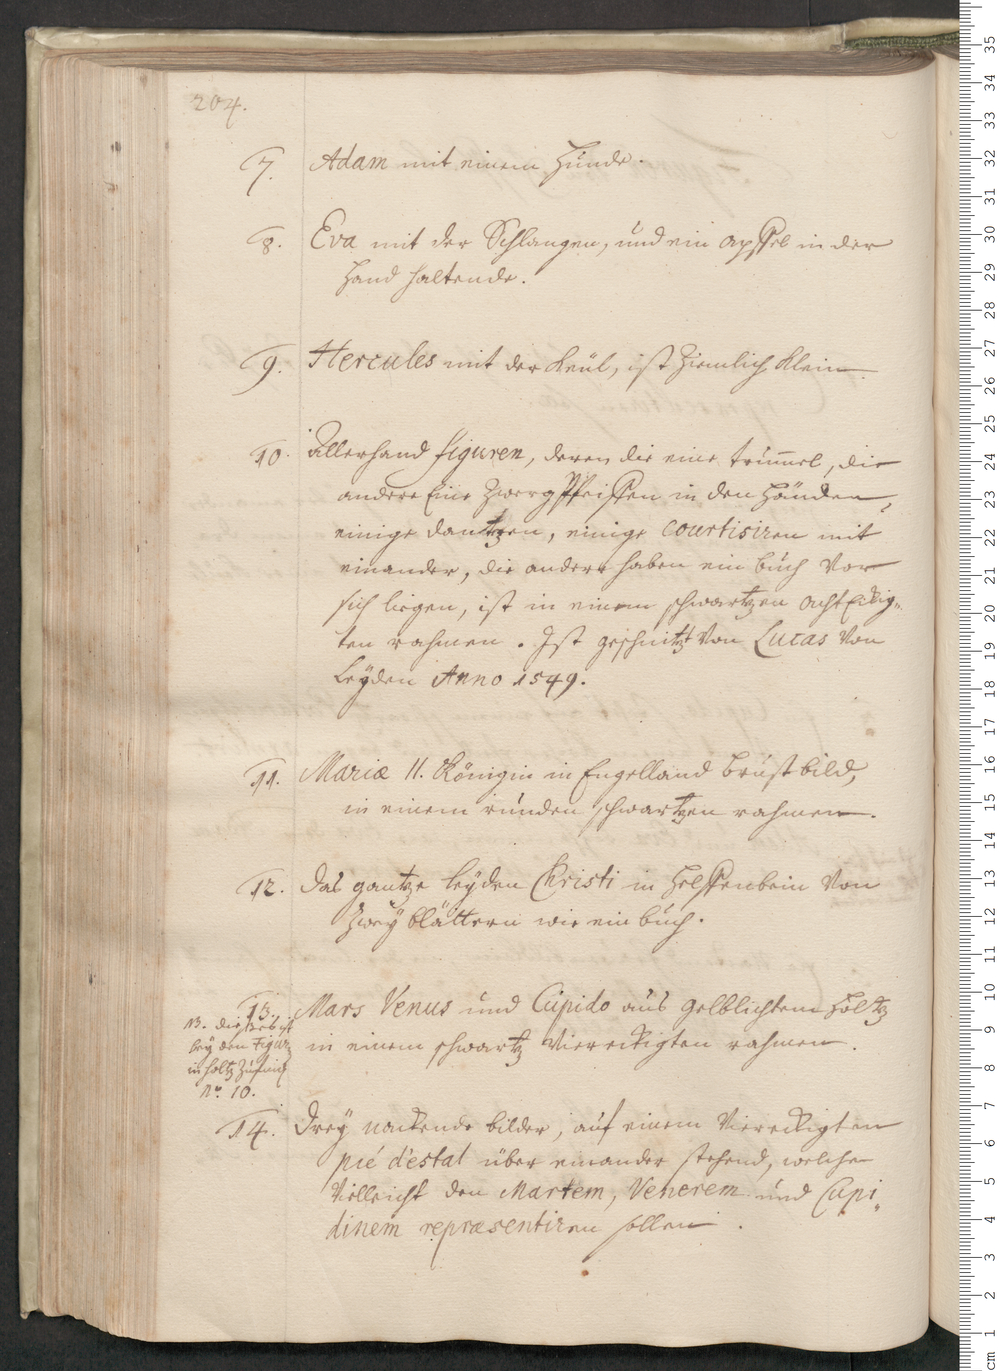 204.
7. Adam mit einem Hunde.
8. Eva mit der Schlangen, und ein apffel in der
Hand haltende.
9. Hercules mit der Keül, ist ziemlich klein.
10. Allerhand figuren, deren die eine trum̄el, die
andere Eine ZwergPfeiffen in den Händen,
einige dantzen, einige courtisiren mit
einander, die andere haben ein buch vor
sich liegen, ist in einem schwartzen achtEckig„
ten rahmen. Ist geschnitzt von Lucas von
Leyden Anno 1549.
11. Mariæ II. Königin in Engelland brustbild,
in einem runden schwartzen rahmen.
12. Das gantze leyden Christi in Helffenbein von
Zwey blättern wie ein buch.
13. Mars Venus und Cupido aus gelblichtem Holtz
in einem schwartz viereckigten rahmen.
NB. dieses ist
bey den Figur
in holtz
No. 10.
14. Drey nackende bilder, auf einem viereckigten
pié d'estal über einander stehend, welche
Vielleicht den Martem, Venerem und Cupi„
dinem repræsentiren sollen.